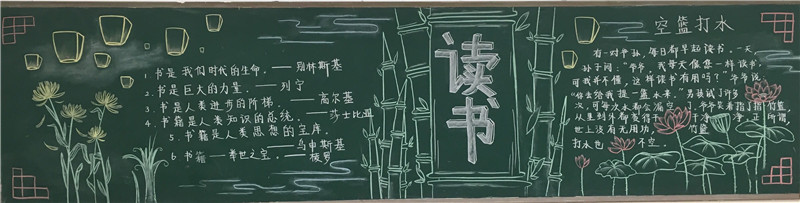 1. 书是我们时代的生命。——别林斯基
2. 书是巨大的力量。——列宁
3. 书是人类进步的阶梯。——高尔基
4. 书籍是人类知识的总统。——莎士比亚
5. 书籍是人类思想的宝库。
——乌申斯基
6. 书籍——举世之宝。——梭罗
读书
空篮打水
有一对爷孙,每日都早起读书。一天,
孙子问:"爷爷,我每天像您一样读书,
可我并不懂,这样读书有用吗?"爷爷说
"你去给我提一篮水来。"男孩试了许多
次,可每次水都会漏空了。爷爷笑着指了指竹篮,
从里到外都变得干干净净,正所谓,
世上没有无用功,竹篮
打水也不空。